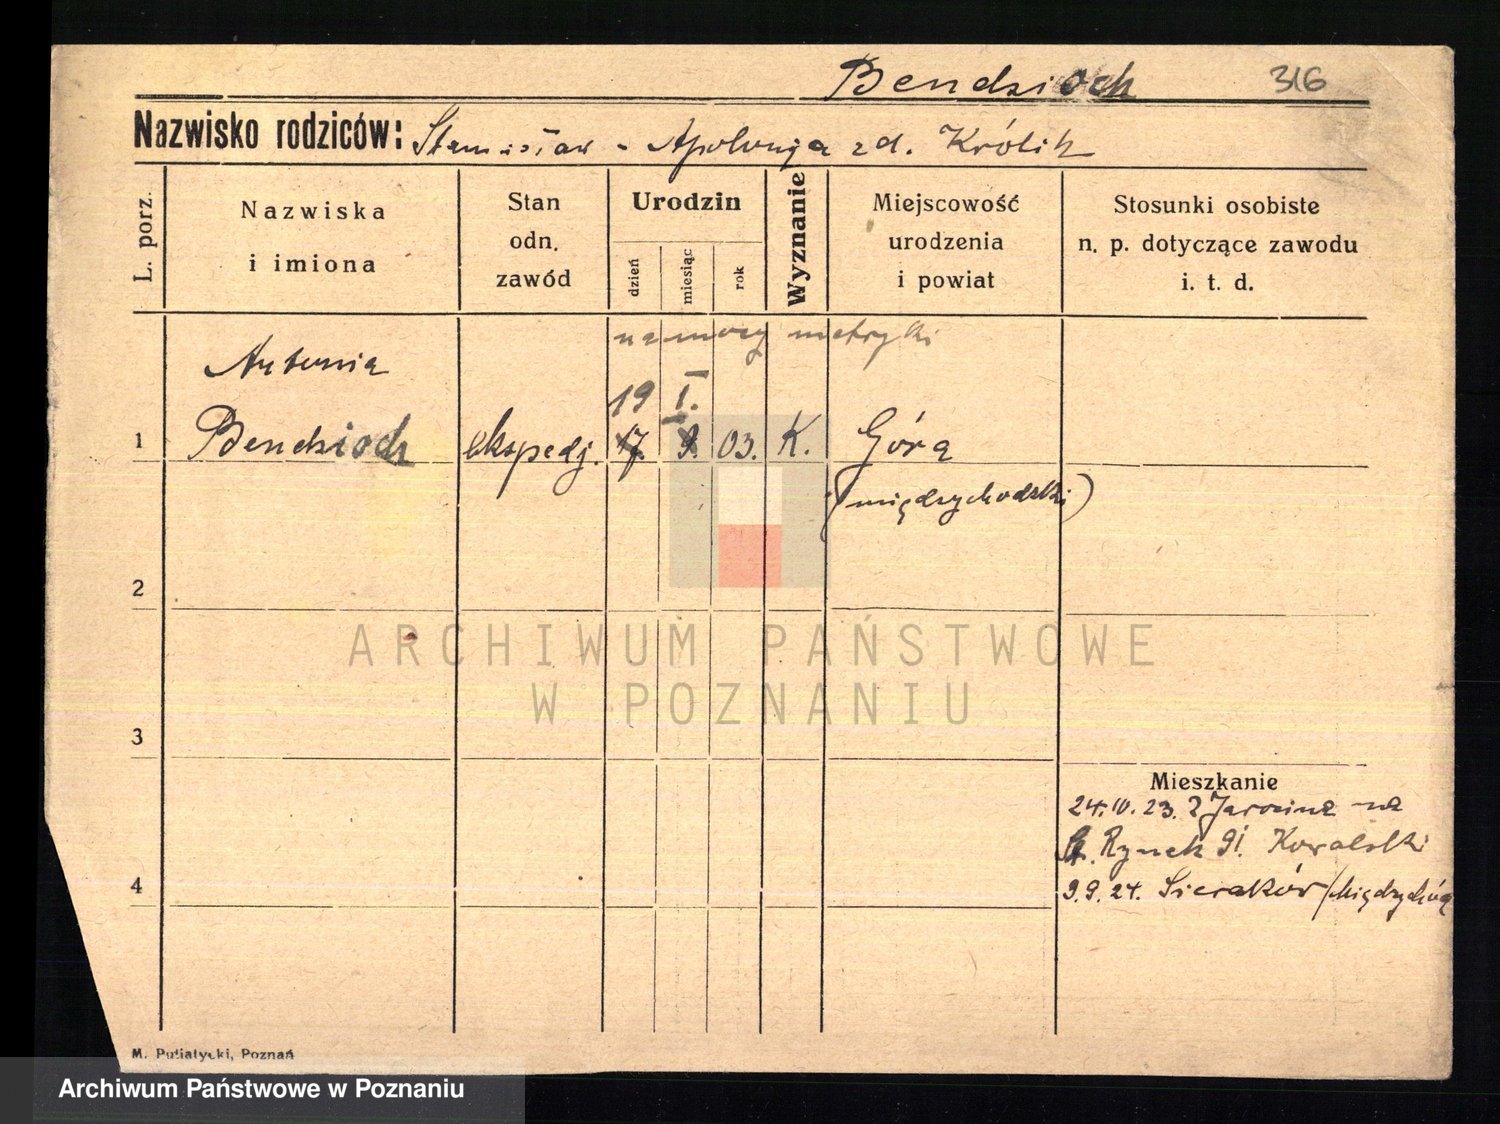 Bendzioch 316
Nazwisko rodziców: Stanisław - Apolonja zd. Królik
L. porz.
Nazwiska
i imiona
Stan
odn.
zawód
Urodzin
dzień
miesiąc
rok
Wyznanie
Miejscowość
urodzenia
i powiat
Stosunki osobiste
n. p. dotyczące zawodu
i. t. d.
na mocy metryki
Antonia
19 I.
1 Bendzioch ekspedj. 17. 9. 03. K. Góra
(międzychodzki)
2
3
4
Mieszkanie
24.IV.23. z Jarocina na
St. Rynek 91. Kowalski
9.9.24. Sieraków /Międzychód
M. Putiatycki, Poznań
ARCHIWUM PAŃSTWOWE
W POZNANIU
Archiwum Państwowe w Poznaniu